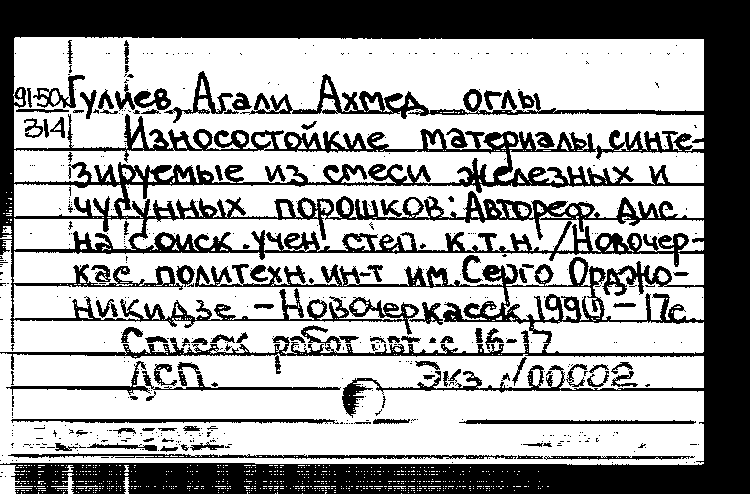 91-50к Гулиев, Агали Ахмед оглы
314 Износостойкие материалы, синте-
зируемые из смеси железных и
чугунных порошков: Автореф. дис.
на соиск. учен. степ. к.т.н. / Новочер-
кас. политехн. ин-т им. Серго Орджо-
никидзе. – Новочеркасск, 1990. – 17 с.
Список работ авт.: с. 16-17.
ДСП. Экз. №00002.